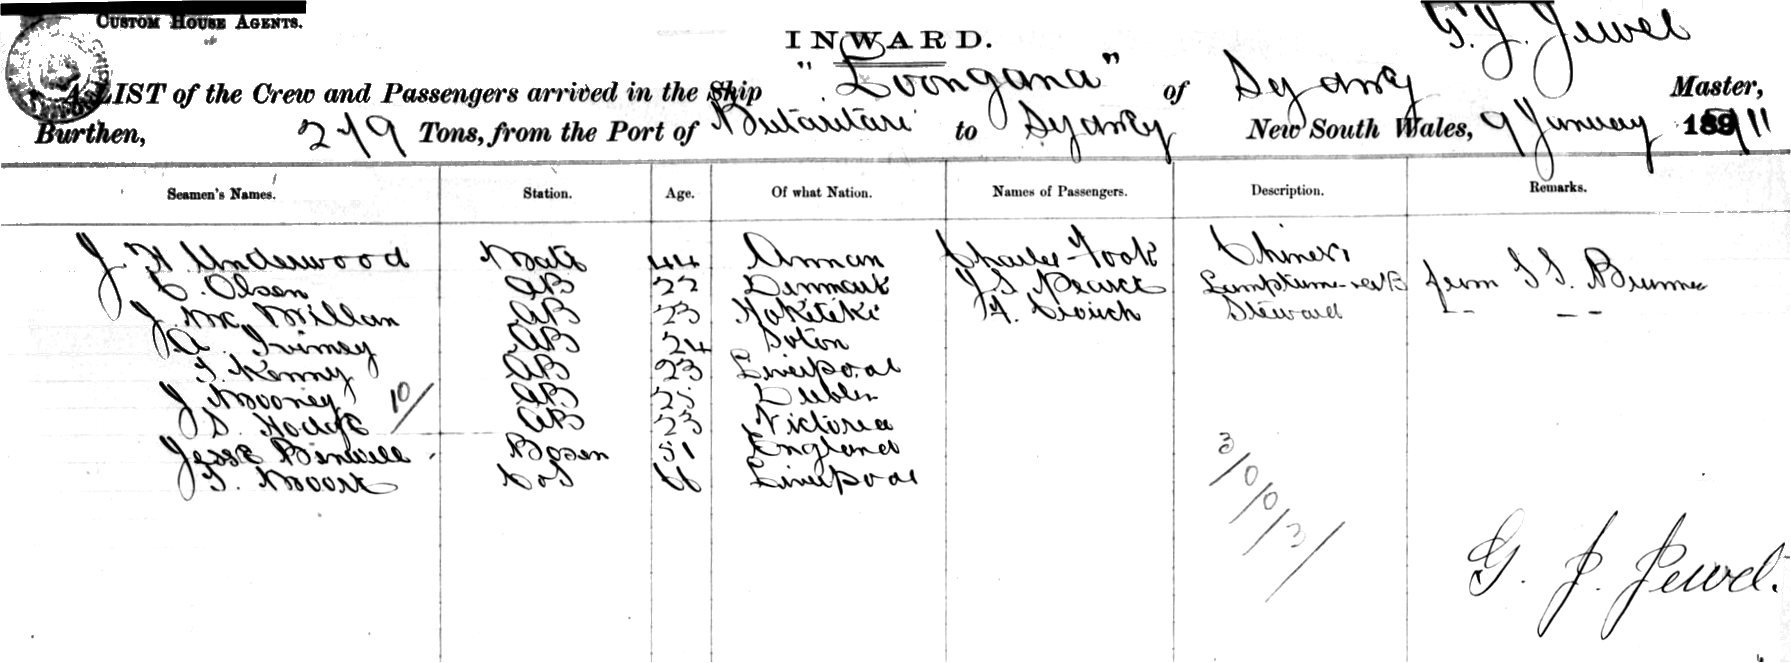 CUSTOM HOUSE AGENTS.
INWARD.
G. J. Jewel
A LIST of the Crew and Passengers arrived in the Ship "Loongana" of Sydney Master,
Burthen, 279 Tons, from the Port of Butaritari to Sydney New South Wales, 9 January 1911
Seamen's Names. Station. Age. Of what Nation. Names of Passengers. Description. Remarks.
J H Underwood Mate 44 Annan Charles Fook Chinese
C. Olsen AB 22 Denmark J S Pearce from S S.
J. McMillan AB 23 Hokitika H. Crouch Steward
A. Ivimey AB 24 Soton
T. Kenny AB 23 Liverpool
J Mooney AB 25 Dublin
10/
S. Hodge AB 23 Victoria
Jesse Binwell Bosen 51 England
T. Moore Cook 66 Liverpool
3/0/0/3/
G. J. Jewel.